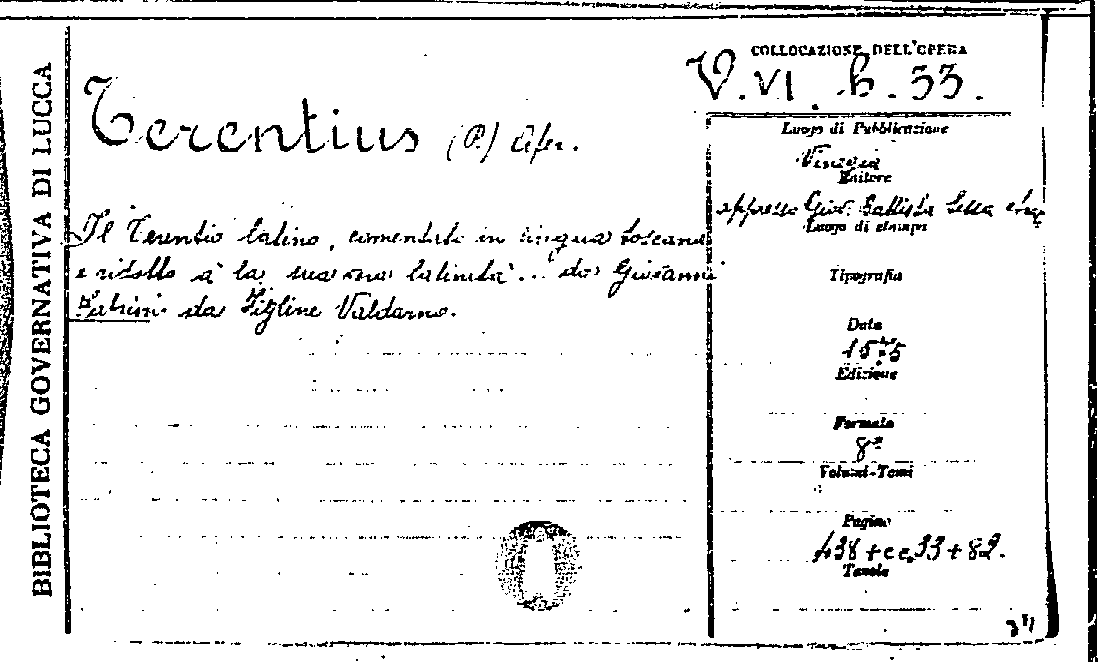 BIBLIOTECA GOVERNATIVA DI LUCCA
COLLOCAZIONE DELL'OPERA
V. VI. b. 33.
Terentius (P.) Afer.
Il Terentio latino, comentato in lingua toscana
e ridotto a la sua vera latinità... da Giovanni
Fabrini da Figline Valdarno.
Luogo di Pubblicazione
Vinegia
Editore
appresso Giov. Battista Sessa
Luogo di stampa
Tipografia
Data
Edizione
Formato
8º
Volumi-Tomi
Pagine
438 + cc. 33 + 82.
Tavole